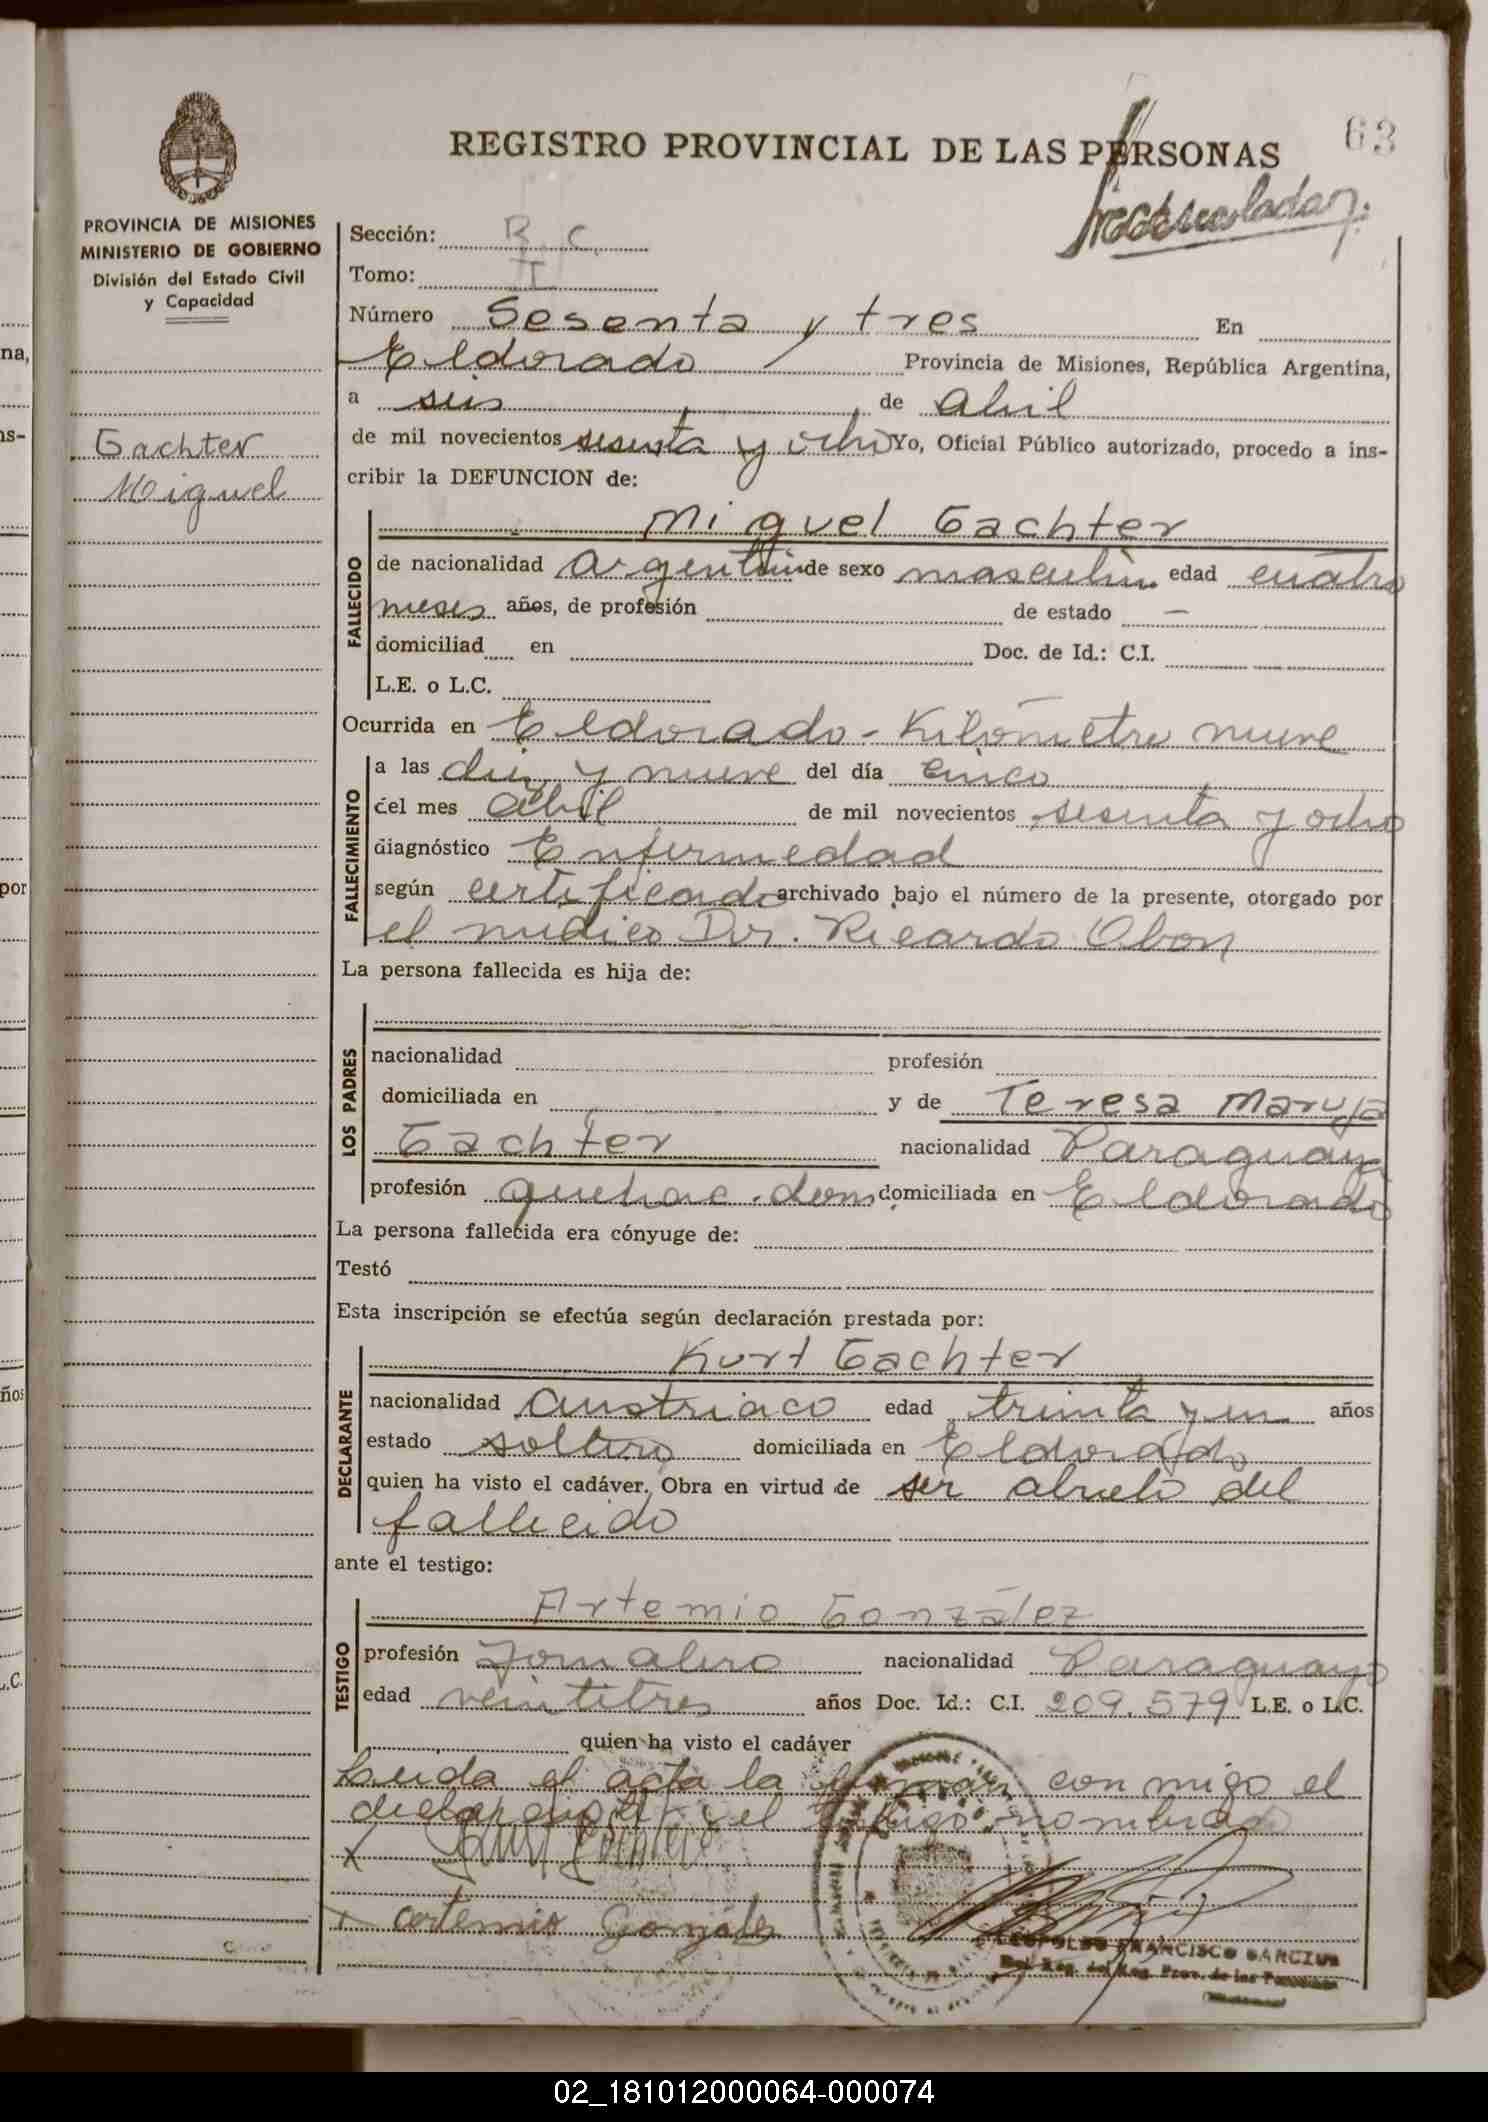 REGISTRO PROVINCIAL DE LAS PERSONAS
63
PROVINCIA DE MISIONES
MINISTERIO DE GOBIERNO
División del Estado Civil
y Capacidad
Gachter
Miguel
Sección: B C.
Tomo: I
Número Sesenta y tres En
Eldorado Provincia de Misiones, República Argentina,
a seis de abril
de mil novecientos sesenta y ocho Yo, Oficial Público autorizado, procedo a ins-
cribir la DEFUNCION de:
Miguel Gachter
FALLECIDO
de nacionalidad argentin de sexo masculin edad cuatro
meses años, de profesión de estado —
domiciliad en Doc. de Id.: C.I.
L.E. o L.C.
Ocurrida en Eldorado - Kilómetro nueve
FALLECIMIENTO
a las diez y nueve del día cinco
del mes abril de mil novecientos sesenta y ocho
diagnóstico Enfermedad
según certificado archivado bajo el número de la presente, otorgado por
el médico Dr. Ricardo Obon
La persona fallecida es hija de:
LOS PADRES
nacionalidad profesión
domiciliada en y de Teresa Maruja
Gachter nacionalidad Paraguaya
profesión quehac. dom. domiciliada en Eldorado
La persona fallecida era cónyuge de:
Testó
Esta inscripción se efectúa según declaración prestada por:
Kurt Gachter
DECLARANTE
nacionalidad austriaco edad treinta y un años
estado soltero domiciliada en Eldorado
quien ha visto el cadáver. Obra en virtud de ser abuelo del
fallecido
ante el testigo:
Artemio González
TESTIGO
profesión Jornalero nacionalidad Paraguayo
edad veintitres años Doc. Id.: C.I. 209.579 L.E. o L.C.
quien ha visto el cadáver
Leida el acta la firman conmigo el
declarante y el testigo nombrado
x
x Artemio González
FRANCISCO
02_181012000064-000074